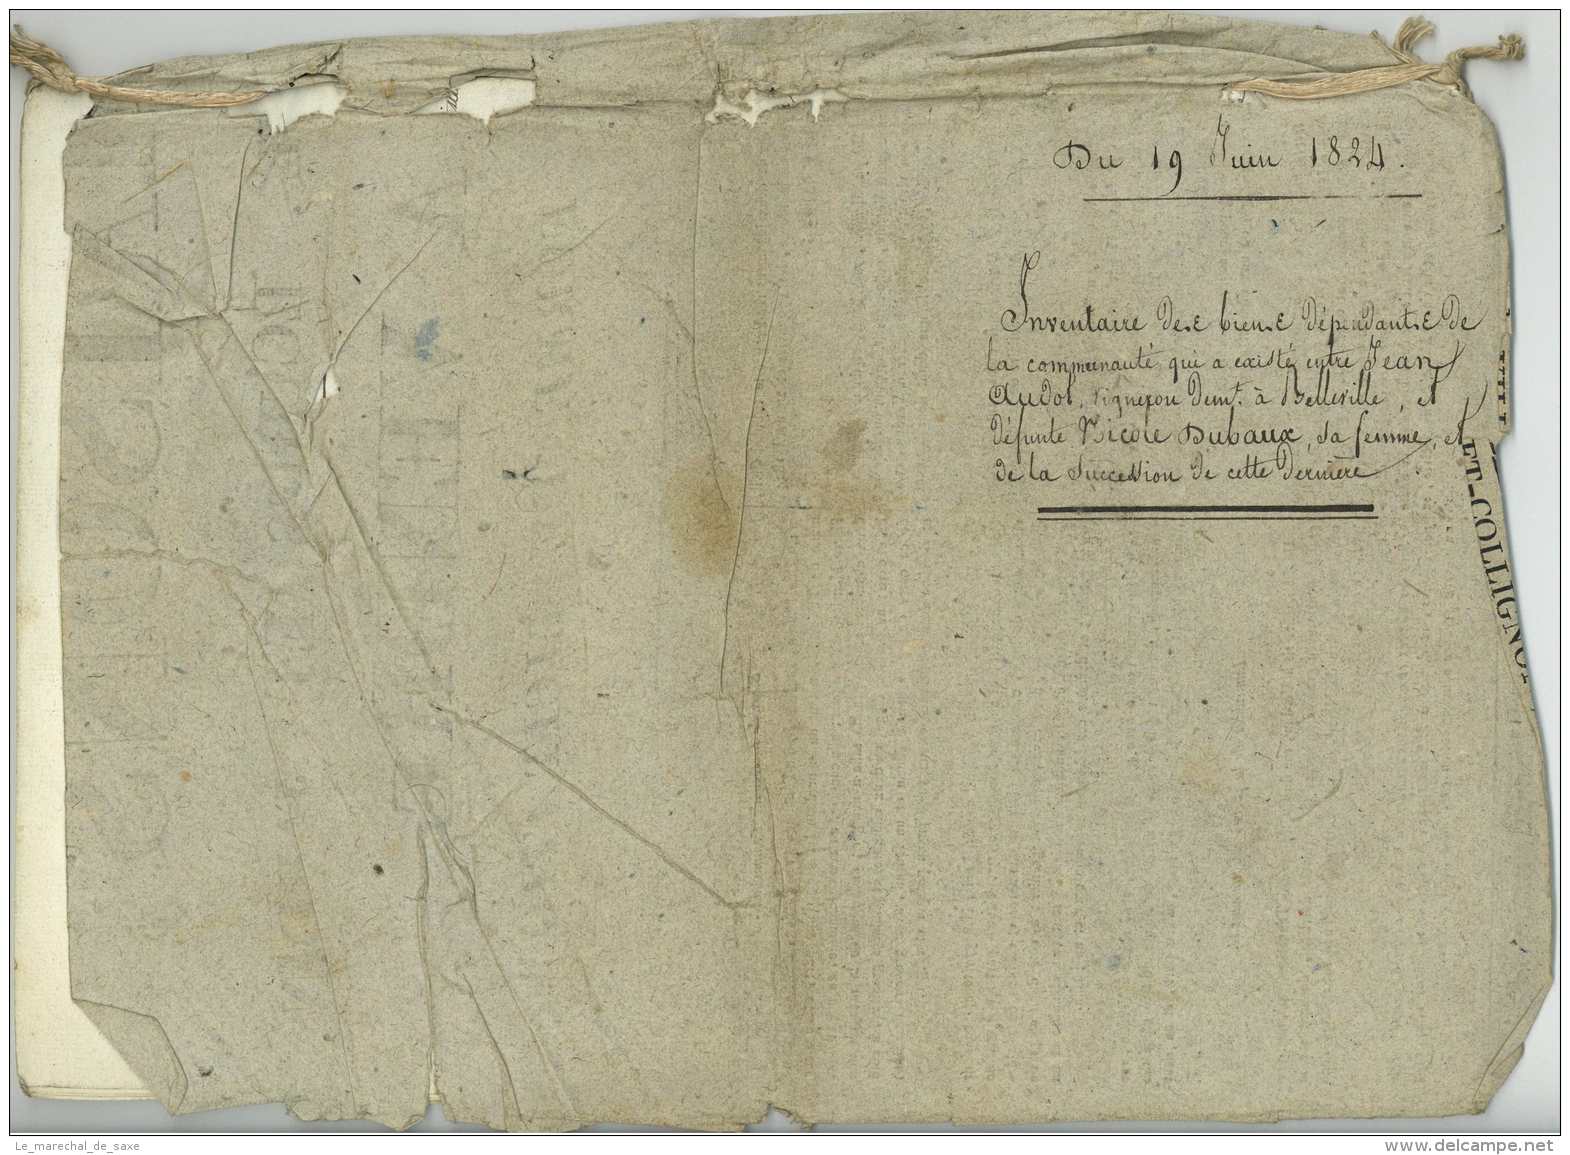 Du 19 Juin 1824.
Inventaire des biens dépendants de
la communauté qui a existé entre Jean
Audot, vigneron demt. à Belleville, et
défunte Nicole Dubaux, sa femme, et
de la succession de cette dernière
ET-COLLIGNON
Le_marechal_de_saxe
www.delcampe.net